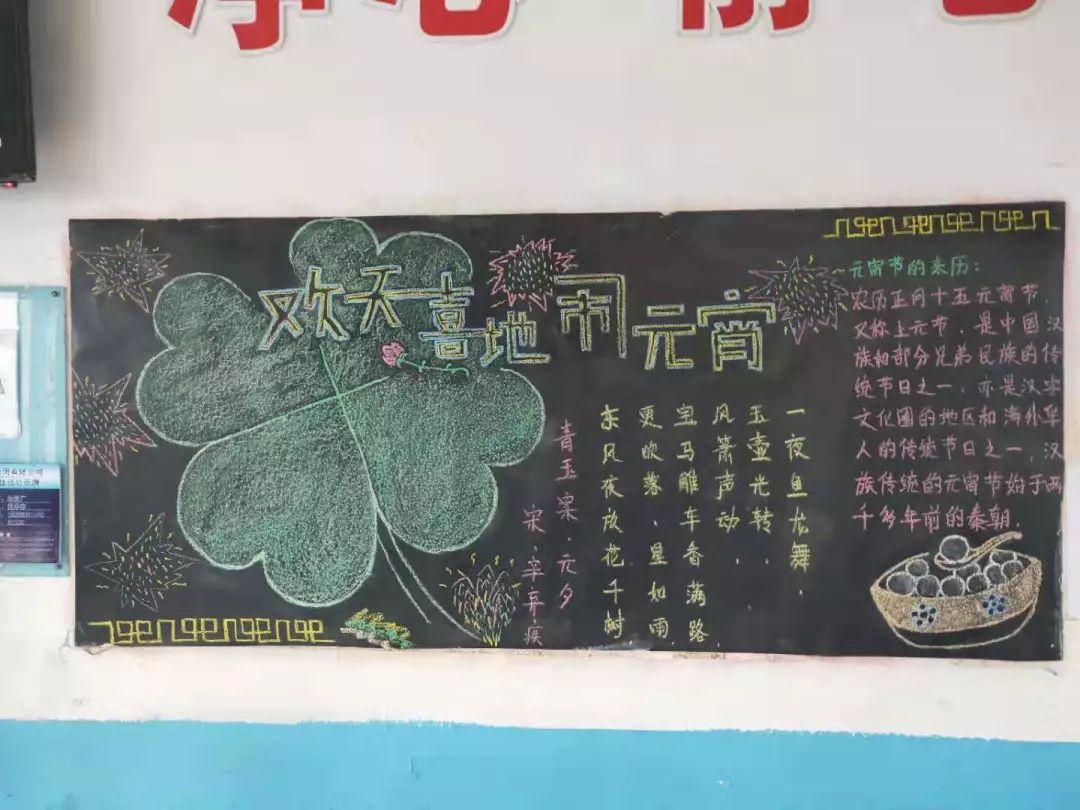 欢天喜地闹元宵
青玉案·元夕
宋·辛弃疾
东风夜放花千树
更吹落、星如雨
宝马雕车香满路
风箫声动,
玉壶光转,
一夜鱼龙舞.
元宵节的来历:
农历正月十五元宵节,
又称上元节,是中国汉
族和部分兄弟民族的传
统节日之一,亦是汉字
文化圈的地区和海外华
人的传统节日之一,汉
族传统的元宵节始于两
千多年前的秦朝.